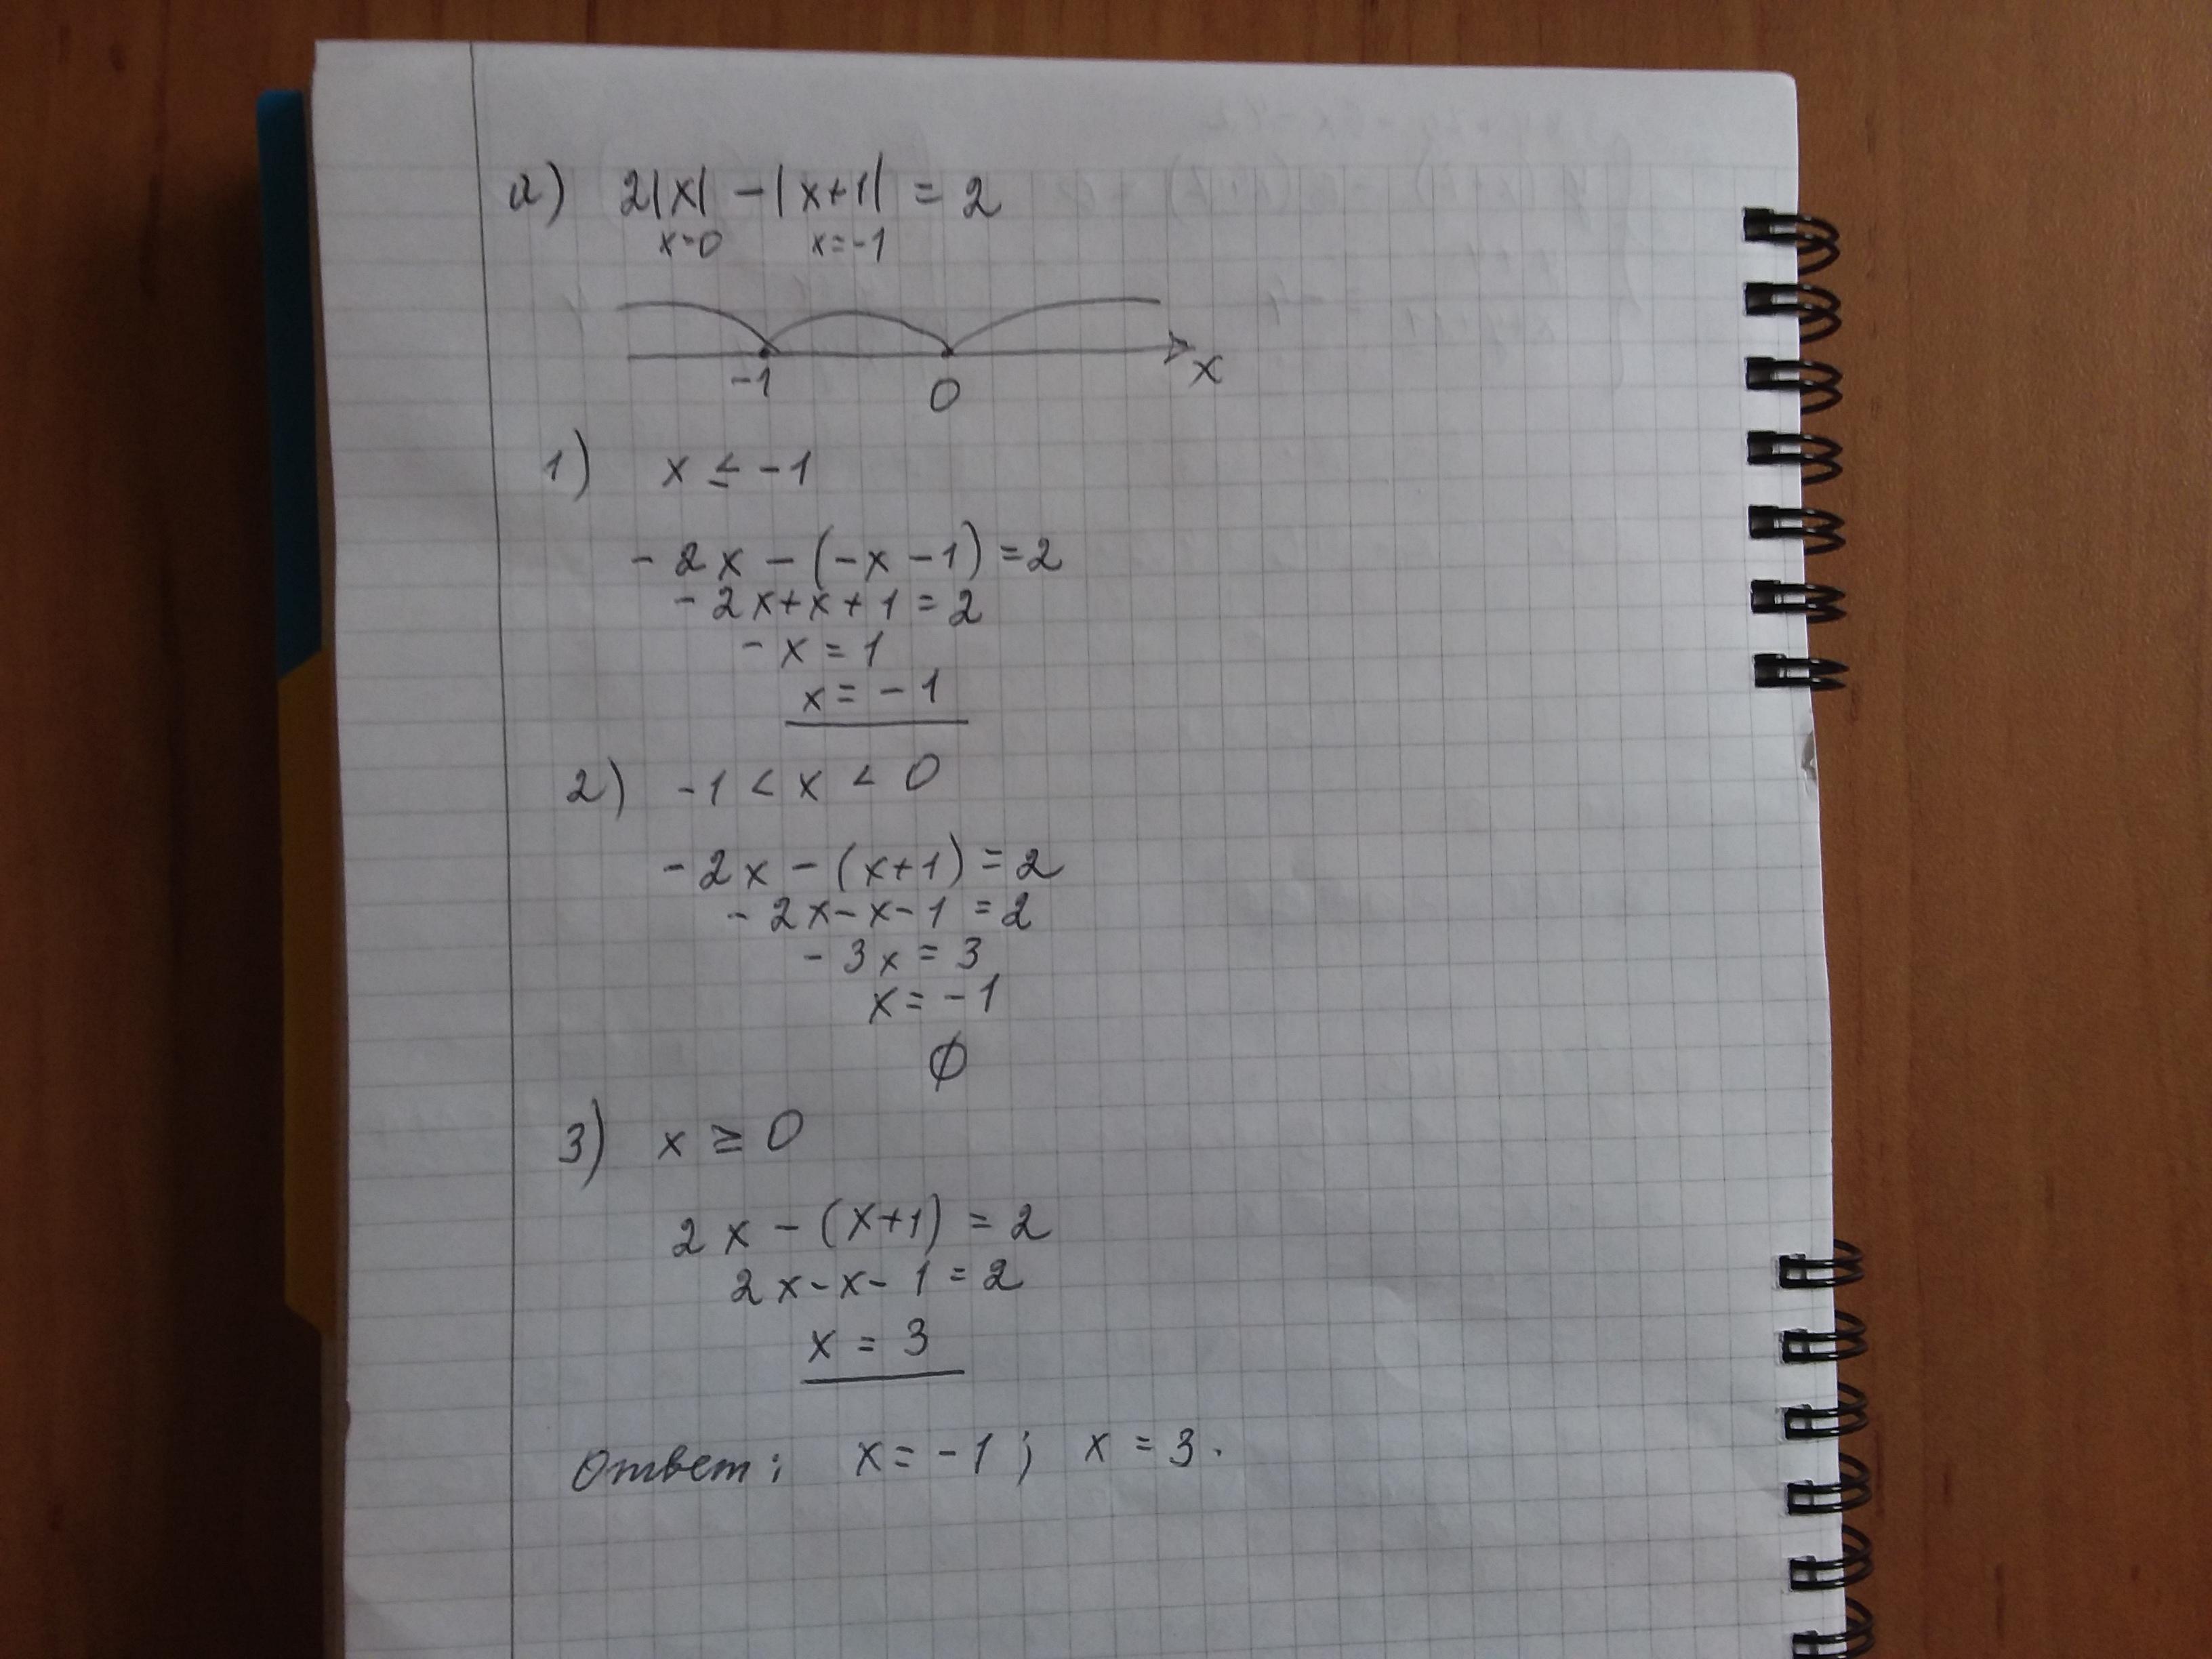 а) 2|x| - |x+1| = 2
x=0 x=-1
-1 0 x
1) x ≤ -1
- 2x - (-x - 1) = 2
- 2x + x + 1 = 2
- x = 1
x = - 1
2) -1 < x < 0
- 2x - (x+1) = 2
- 2x - x - 1 = 2
- 3x = 3
x = - 1
∅
3) x ≥ 0
2x - (x+1) = 2
2x - x - 1 = 2
x = 3
Ответ: x = -1; x = 3.